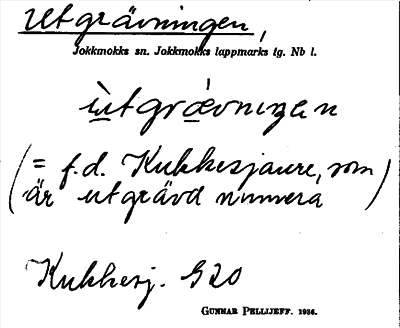 Utgrävningen,
Jokkmokks sn. Jokkmokks lappmarks tg. Nb l.
ùtgrǽvniŋen
(= f.d. Kukkesjaure, som
är utgrävd numera)
Kukkesj. G20
GUNNAR PELLIJEFF. 1956.